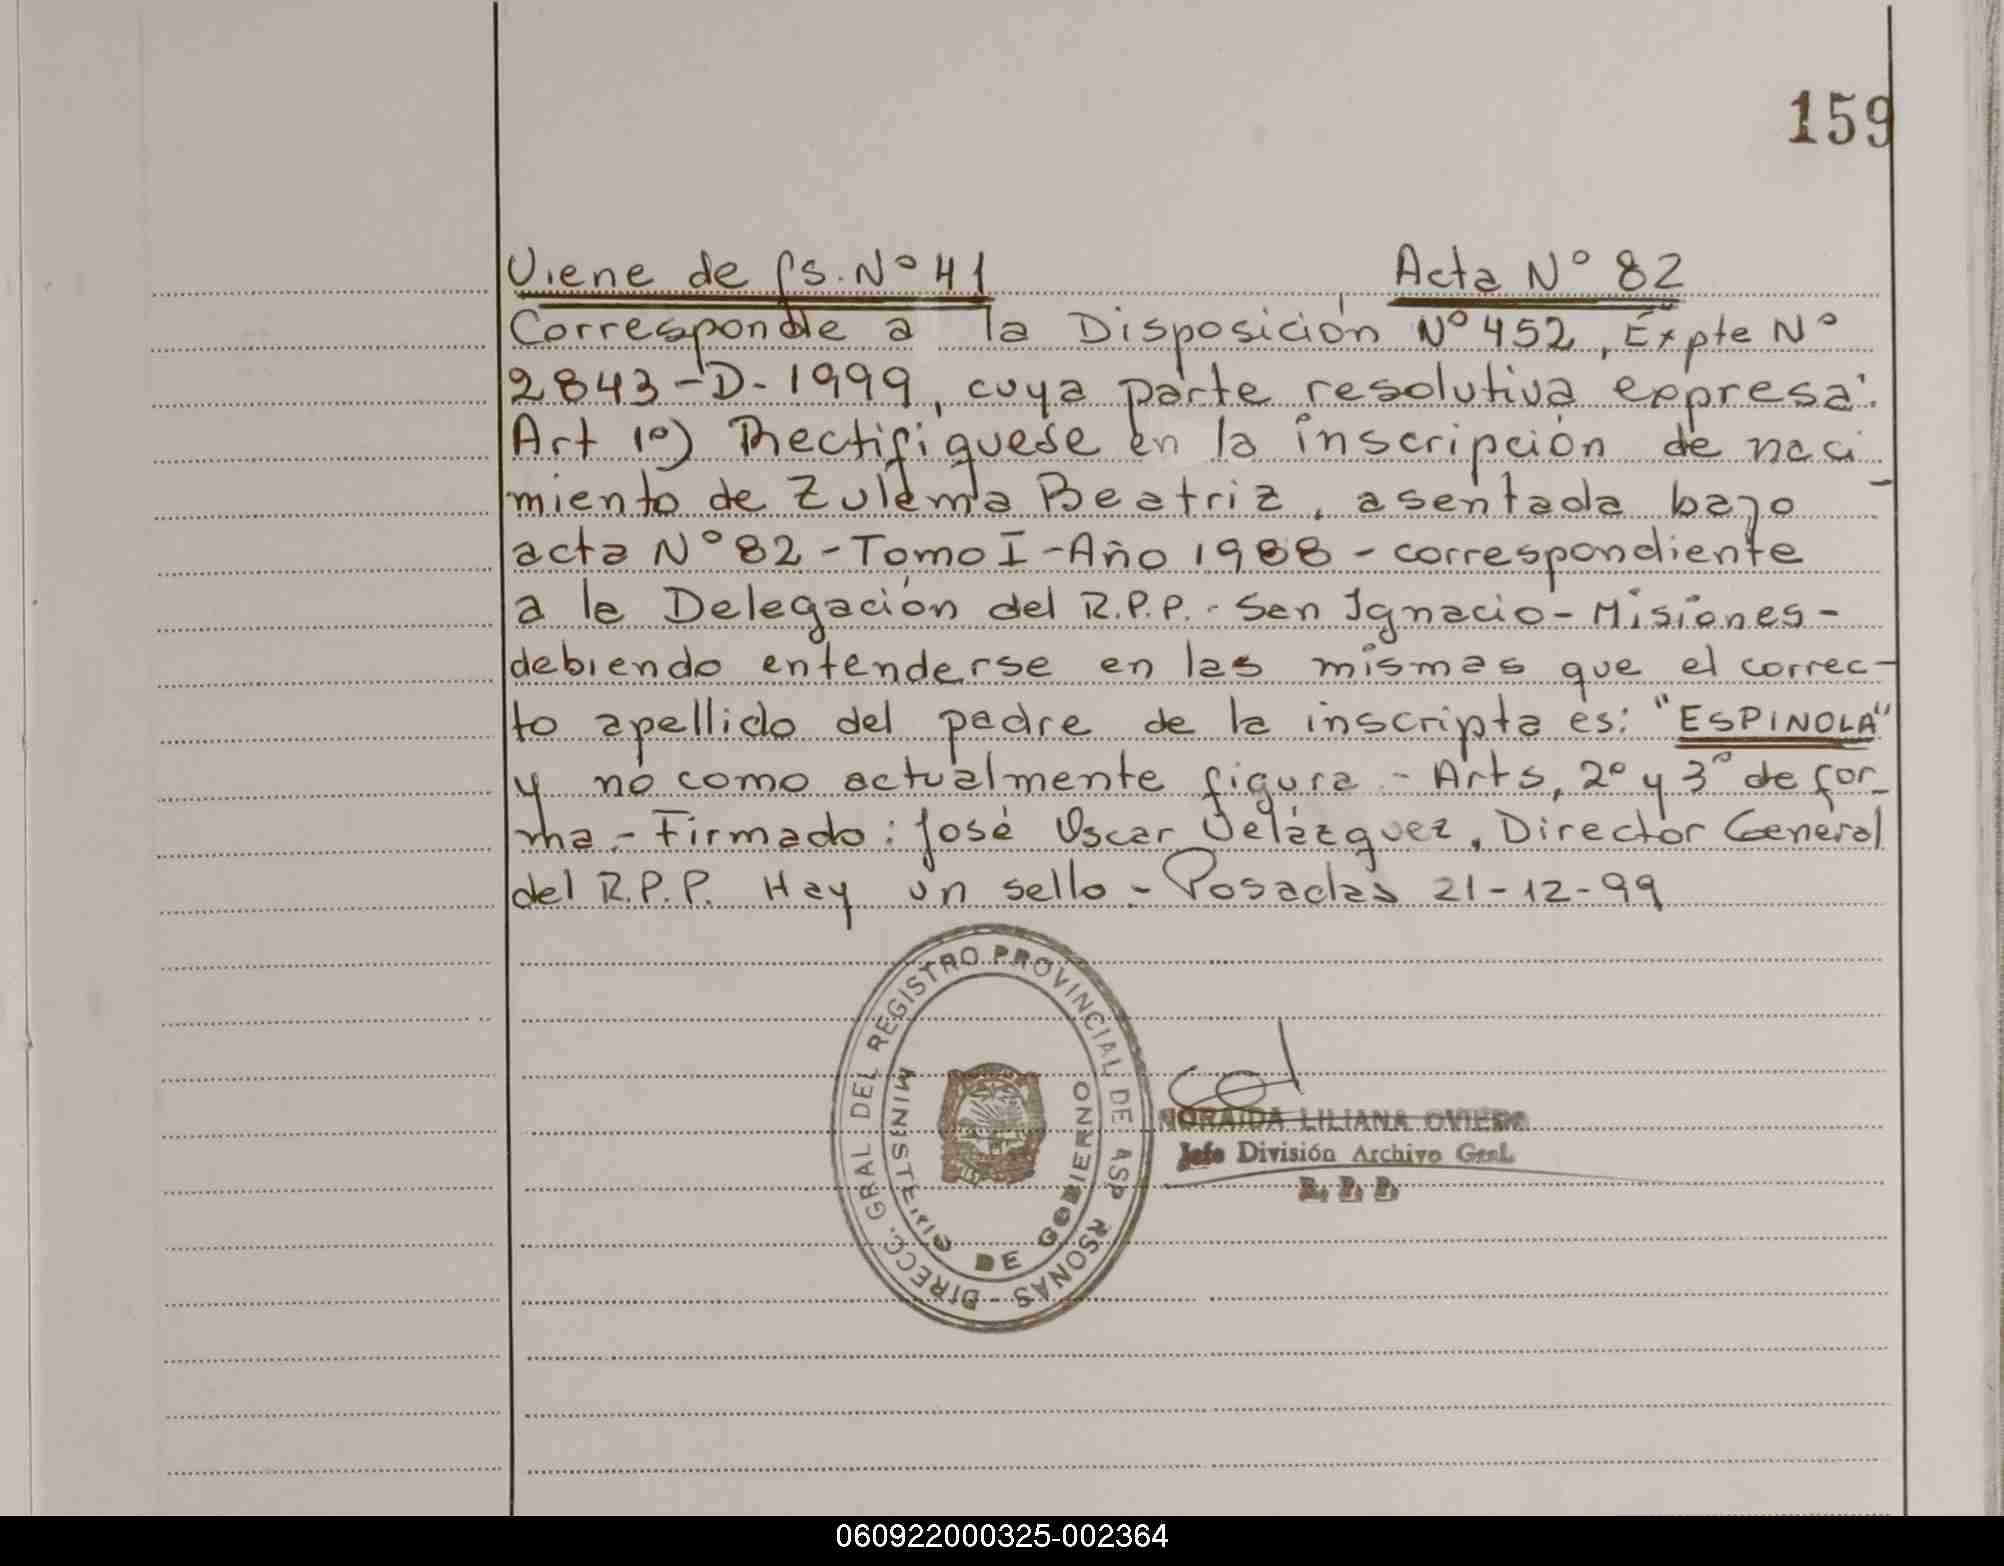 159
Viene de fs. Nº 41 Acta Nº 82
Corresponde a la Disposición Nº 452, Expte Nº
2843-D-1999, cuya parte resolutiva expresa:
Art 1º) Rectifiquese en la inscripción de naci-
miento de Zulema Beatriz, asentada bajo
acta Nº 82 - Tomo I - Año 1988 - correspondiente
a la Delegación del R.P.P. - San Ignacio - Misiones -
debiendo entenderse en las mismas que el correc-
to apellido del padre de la inscripta es: "ESPINOLA"
y no como actualmente figura - Arts, 2º y 3º de for-
ma. - Firmado: José Oscar Velázquez, Director General
del R.P.P. Hay un sello - Posadas 21-12-99
DIRECC. GRAL DEL REGISTRO PROVINCIAL DE ASP RSONAS -
MINISTERIO DE GOBIERNO
NORAIDA LILIANA OVIEDO
Jefe División Archivo Gral.
R. P. P.
060922000325-002364